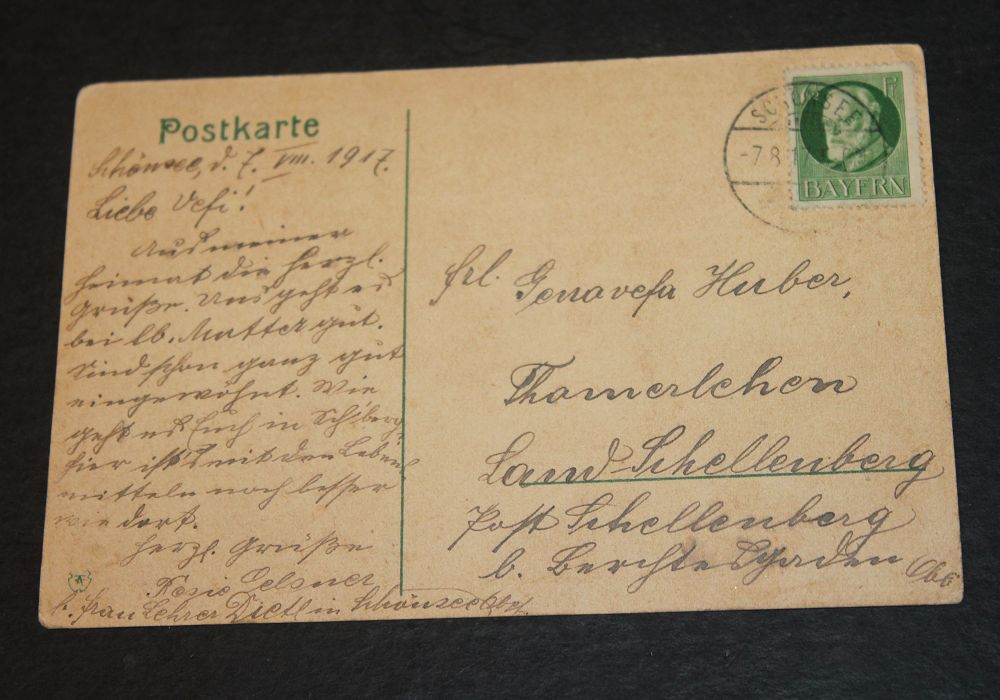 Postkarte
Schönsee, d. 7. VIII. 1917.
Liebe Vefi!
Aus meiner
Heimat die herzl.
Grüße. Uns geht es
bei lb. Mutter gut.
Sind schon ganz gut
eingewöhnt. Wie
geht es Euch in Schlberg?
Hier ist's mit den Lebens
mitteln noch besser
wie dort.
Herzl. Grüße
Rosie Oelsner
b. Frau Lehrer Dietl in Schönsee Obpf.
SCHÖNSEE
-7.8.1
BAYERN
Frl. Genovefa Huber,
Thomerlehen
Land Schellenberg
Post Schellenberg
b. Berchtesgaden Obb